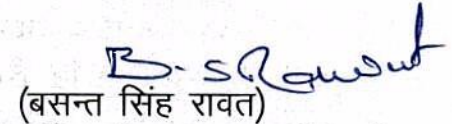 B. S Rawat
(बसन्त सिंह रावत)